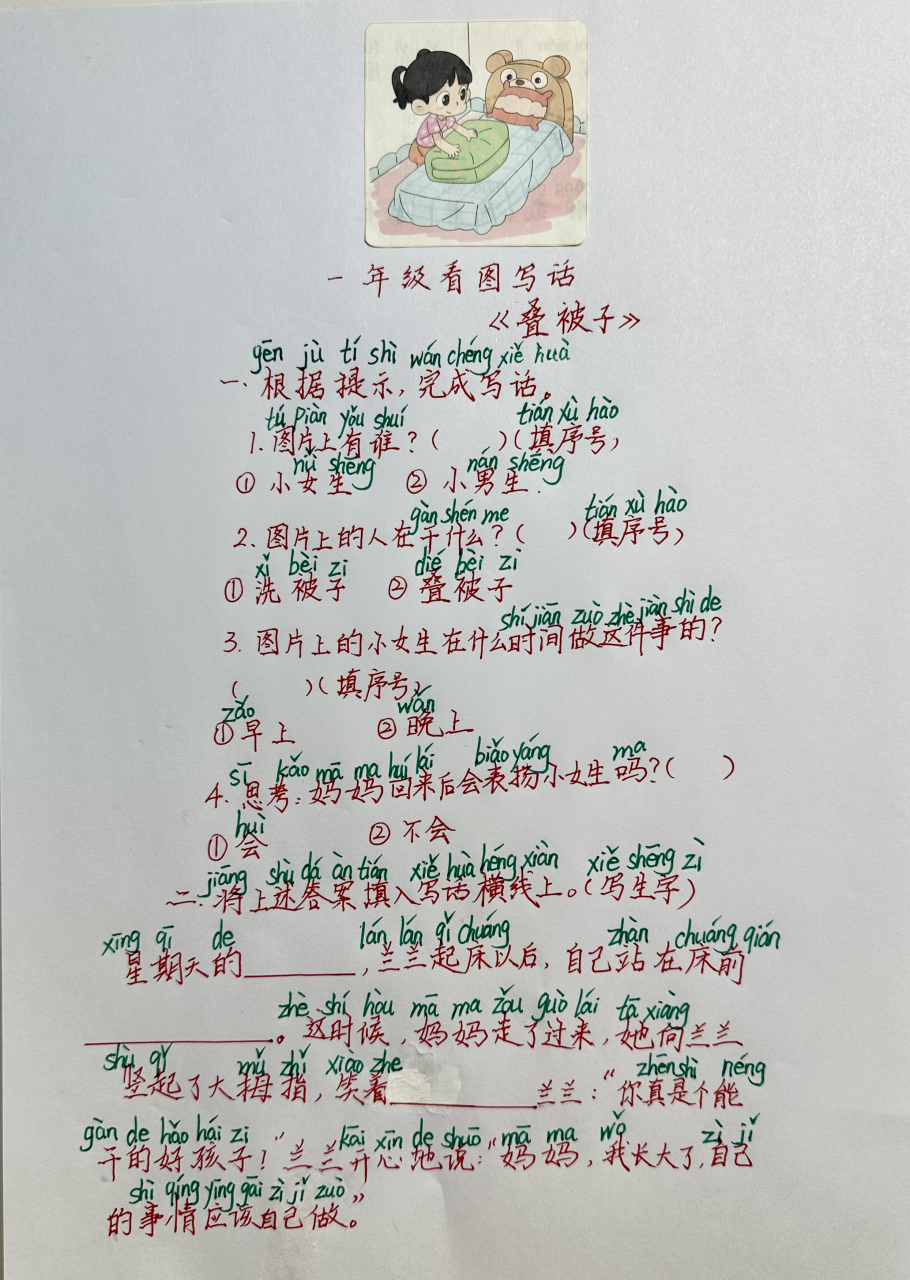 一年级看图写话
《叠被子》
gēn jù tí shì wán chéng xiě huà
一、根据提示,完成写话。
tú piàn yǒu shuí tián xù hào
1.图片上有谁?( )(填序号)
nǚ shēng nán shēng
① 小女生 ② 小男生.
gàn shén me tián xù hào
2.图片上的人在干什么?( )(填序号)
xǐ bèi zi dié bèi zi
① 洗被子 ② 叠被子
shí jiān zuò zhè jiàn shì de
3.图片上的小女生在什么时间做这件事的?
( )(填序号)
zǎo wǎn
①早上 ②晚上
sī kǎo mā ma huí lái biǎo yáng ma
4.思考:妈妈回来后会表扬小女生吗?( )
huì
①会 ②不会
jiāng shù dá àn tián xiě huà héng xiàn xiě shēng zì
二.将上述答案填入写话横线上。(写生字)
xīng qī de lán lán qǐ chuáng zhàn chuáng qián
星期天的________,兰兰起床以后,自己站在床前
zhè shí hòu mā ma zǒu guò lái tā xiàng
____________。这时候,妈妈走了过来,她向兰兰
shù qǐ mǔ zhǐ xiào zhe zhēn shì néng
竖起了大拇指,笑着__________兰兰:“你真是个能
gàn de hǎo hái zi kāi xīn de shuō mā ma wǒ zì jǐ
干的好孩子!”兰兰开心地说:“妈妈,我长大了,自己
shì qíng yīng gāi zì jǐ zuò
的事情应该自己做。”